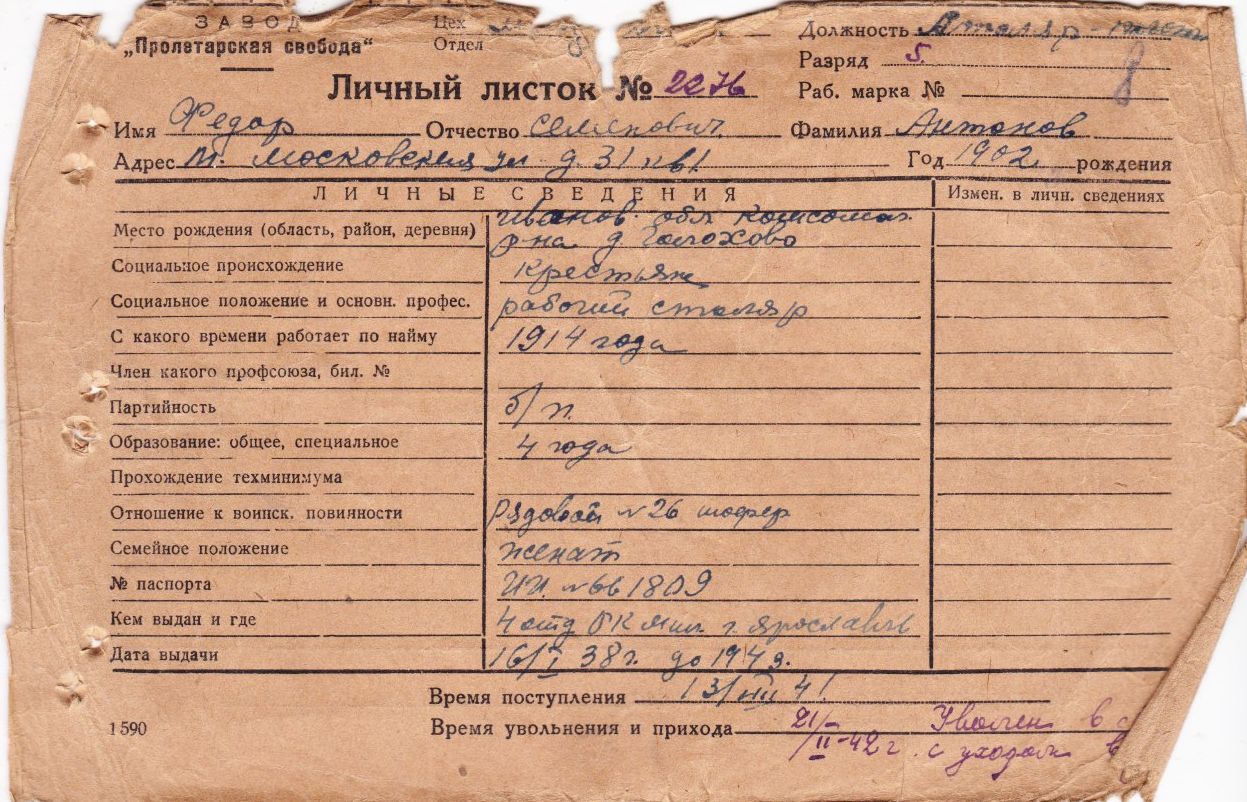 ЗАВОД
„Пролетарская свобода“
Цех
Отдел
Должность Столяр
Разряд 5.
Личный листок №
Раб. марка №
8
Имя Федор Отчество Семенович Фамилия Антонов
Адрес Московская ул д. 31 кв 1 Год 1902 рождения
ЛИЧНЫЕ СВЕДЕНИЯ Измен. в личн. сведениях
Место рождения (область, район, деревня) Иванов. обл Комсомол.
р-на д Голохово
Социальное происхождение крестьян
Социальное положение и основн. профес. рабочий столяр
С какого времени работает по найму 1914 года
Член какого профсоюза, бил. №
Партийность б/п.
Образование: общее, специальное 4 года
Прохождение техминимума
Отношение к воинск. повинности Рядовой №26 шофер
Семейное положение женат
№ паспорта №661809
Кем выдан и где 4 отд РК Мил. г. Ярославль
Дата выдачи 16/I 38 г. до 194
Время поступления 13/VIII 41
1590
Время увольнения и прихода 21/II-42 г. Уволен в с
с уходом в